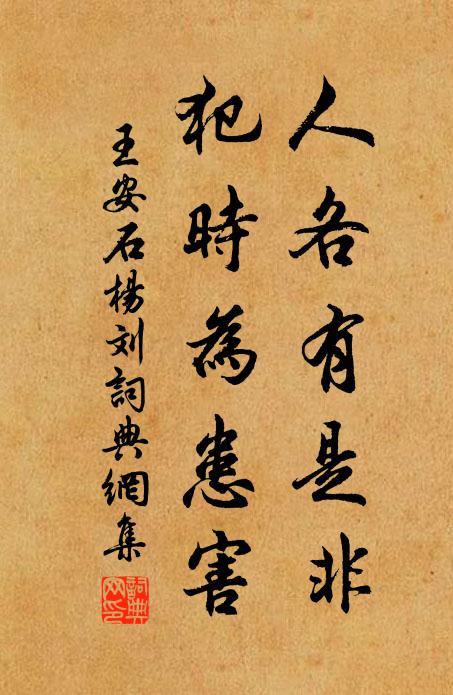 人各有是非
犯時為患害
王安石楊刘詞典網集
詞典網印